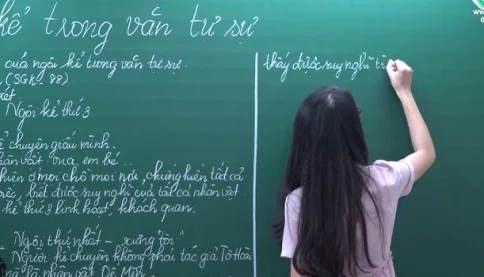 kể trong văn tự sự
của ngôi kể trong văn tự sự.
(SGK. 88)
xét
Ngôi kể thứ 3
kể chuyện giấu mình.
nhân vật ma, em bé...
hiện ở mọi chỗ mọi nơi, chứng kiến tất cả
biết được suy nghĩ của tất cả nhân vật
kể thứ 3 linh hoạt, khách quan.
Ngôi thứ nhất - xưng "tôi"
Người kể chuyện không phải tác giả Tô Hoài
mà là nhân vật Dế Mèn
thấy được suy nghĩ